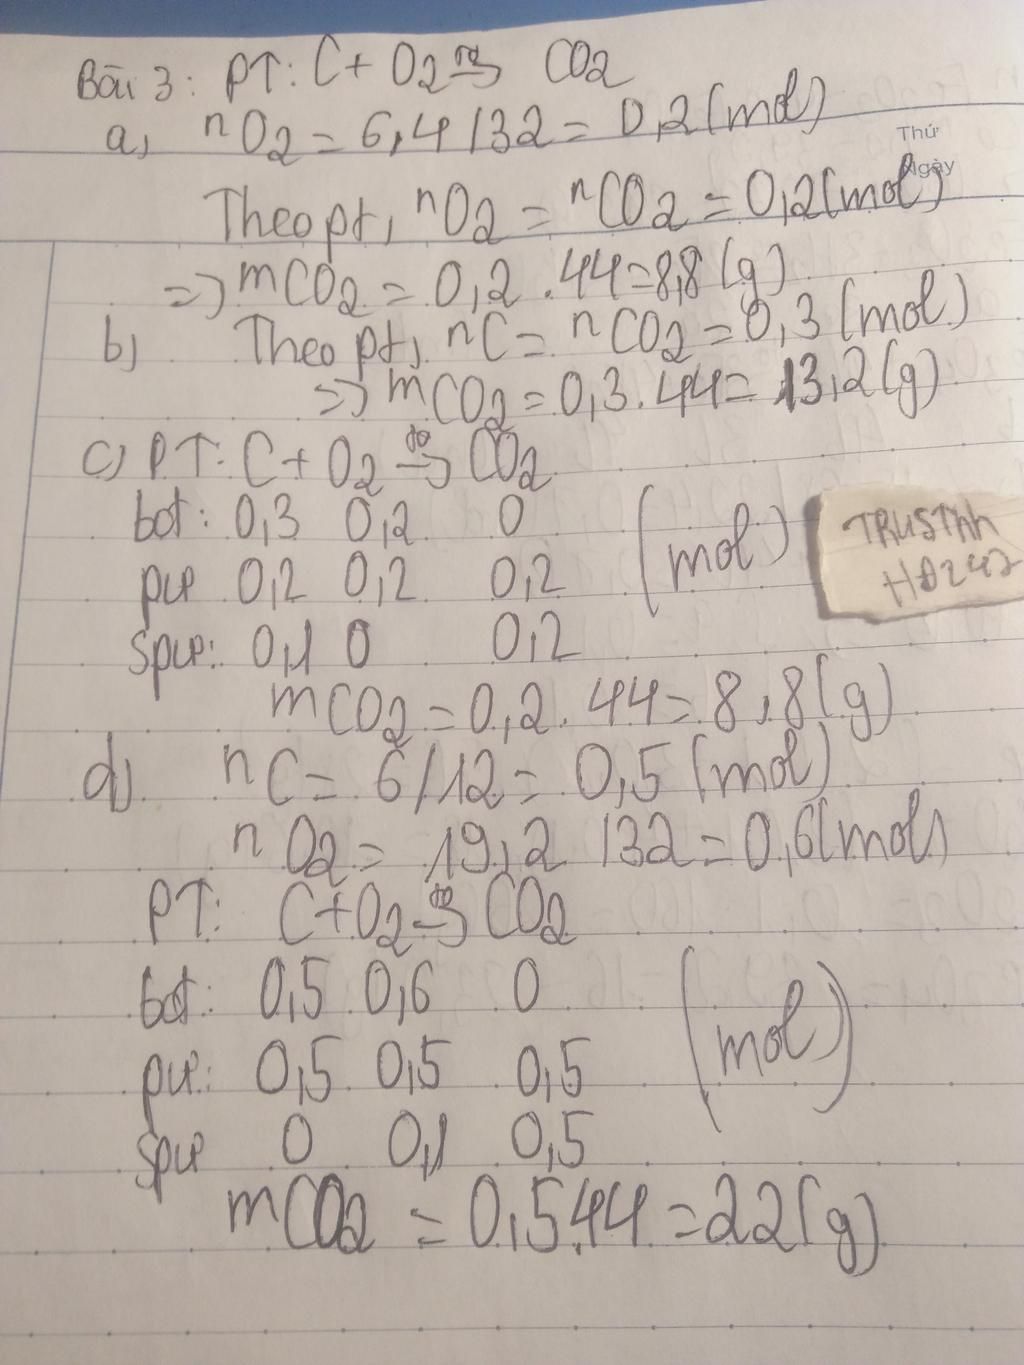 Bài 3: PT: C + O2 to→ CO2
a, nO2 = 6,4/32 = 0,2 (mol)
Thứ
Ngày
Theo pt, nO2 = nCO2 = 0,2 (mol)
=> mCO2 = 0,2 . 44 = 8,8 (g)
b) Theo pt, nC = nCO2 = 0,3 (mol)
=> mCO2 = 0,3 . 44 = 13,2 (g)
c) PT: C + O2 to→ CO2
bđt: 0,3 0,2 0 (mol)
pư 0,2 0,2 0,2
spư: 0,1 0 0,2
TRUSTNN
HD242
mCO2 = 0,2 . 44 = 8,8 (g)
d) nC = 6/12 = 0,5 (mol)
nO2 = 19,2/32 = 0,6 (mol)
PT: C + O2 to→ CO2
bđt: 0,5 0,6 0 (mol)
pư: 0,5 0,5 0,5
spư 0 0,1 0,5
mCO2 = 0,5.44 = 22 (g)